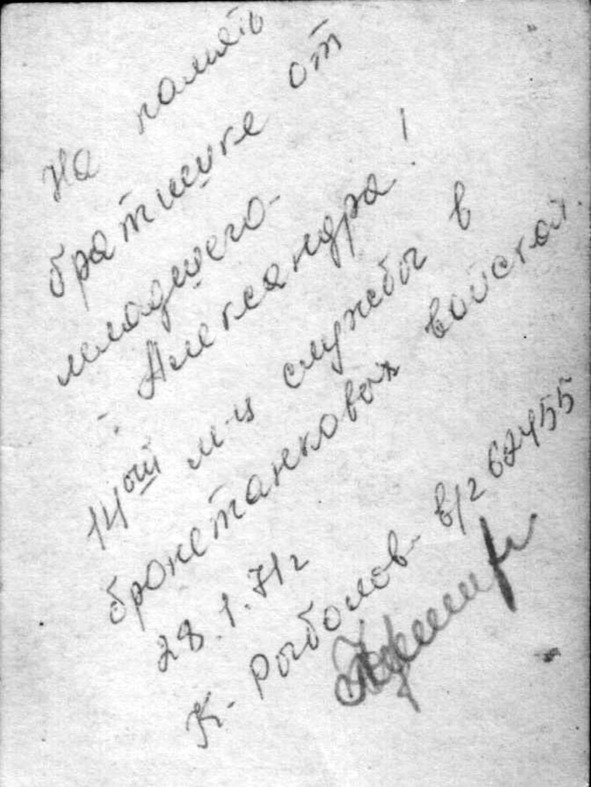 На память
братишке от
младшего-
- Александра!
14ый м-ц службы в
бронетанковых войсках.
28.1.71г
К- Рыболов- в/г 62455